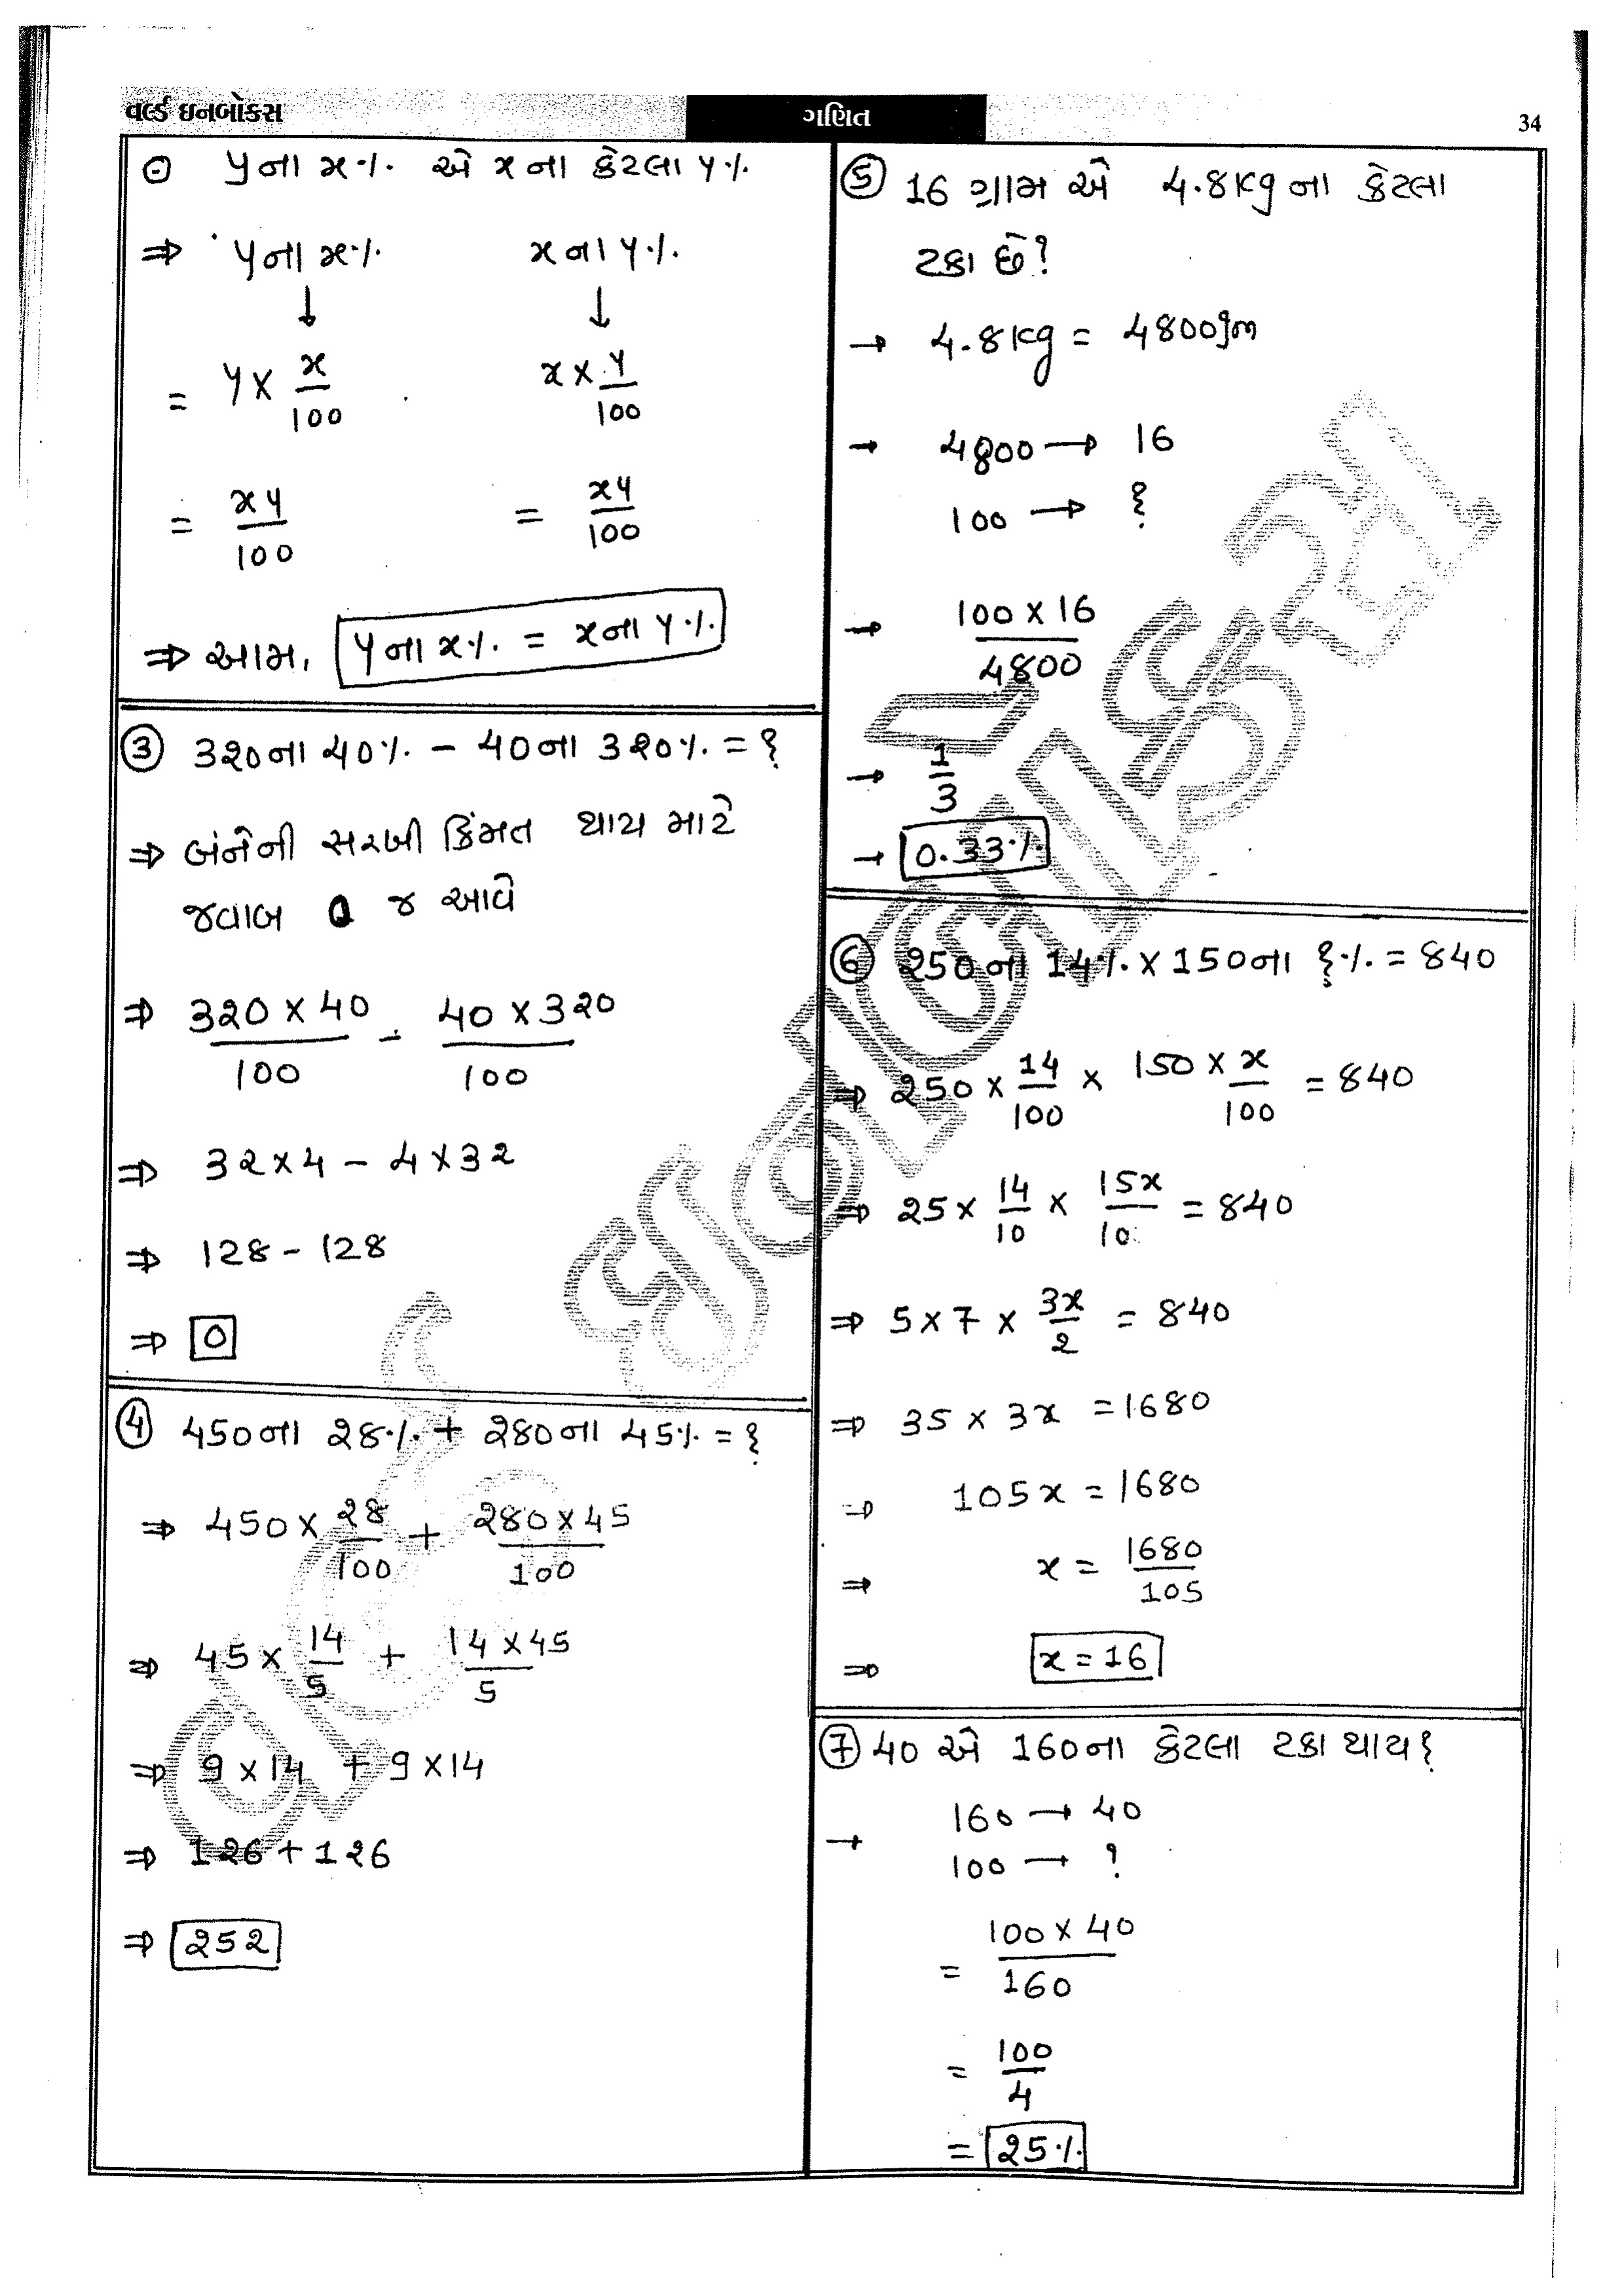 વર્લ્ડ ઇનબોક્સ
ગણિત
34
⊙ yના x% એ xના કેટલા y%
⇒ yના x% xના y%
↓ ↓
= y × x/100 x × y/100
= xy/100 = xy/100
⇒ આમ, yના x% = xના y%
③ 320ના 40% - 40ના 320% = ?
⇒ બંનેની સરખી કિંમત થાય માટે
જવાબ 0 જ આવે
⇒ 320 × 40/100 - 40 × 320/100
⇒ 32×4 - 4×32
⇒ 128 - 128
⇒ 0
④ 450ના 28% + 280ના 45% = ?
⇒ 450 × 28/100 + 280 × 45/100
⇒ 45 × 14/5 + 14 × 45/5
⇒ 9×14 + 9×14
⇒ 126 + 126
⇒ 252
⑤ 16 ગ્રામ એ 4.8kg ના કેટલા
ટકા છે?
→ 4.8kg = 4800gm
→ 4800 → 16
100 → ?
→ 100 × 16/4800
→ 1/3
→ 0.33%
⑥ 250ના 14% × 150ના ?% = 840
⇒ 250 × 14/100 × 150 × x/100 = 840
⇒ 25 × 14/10 × 15x/10 = 840
⇒ 5 × 7 × 3x/2 = 840
⇒ 35 × 3x = 1680
⇒ 105x = 1680
⇒ x = 1680/105
⇒ x = 16
⑦ 40 એ 160ના કેટલા ટકા થાય?
→ 160 → 40
100 → ?
= 100 × 40/160
= 100/4
= 25%